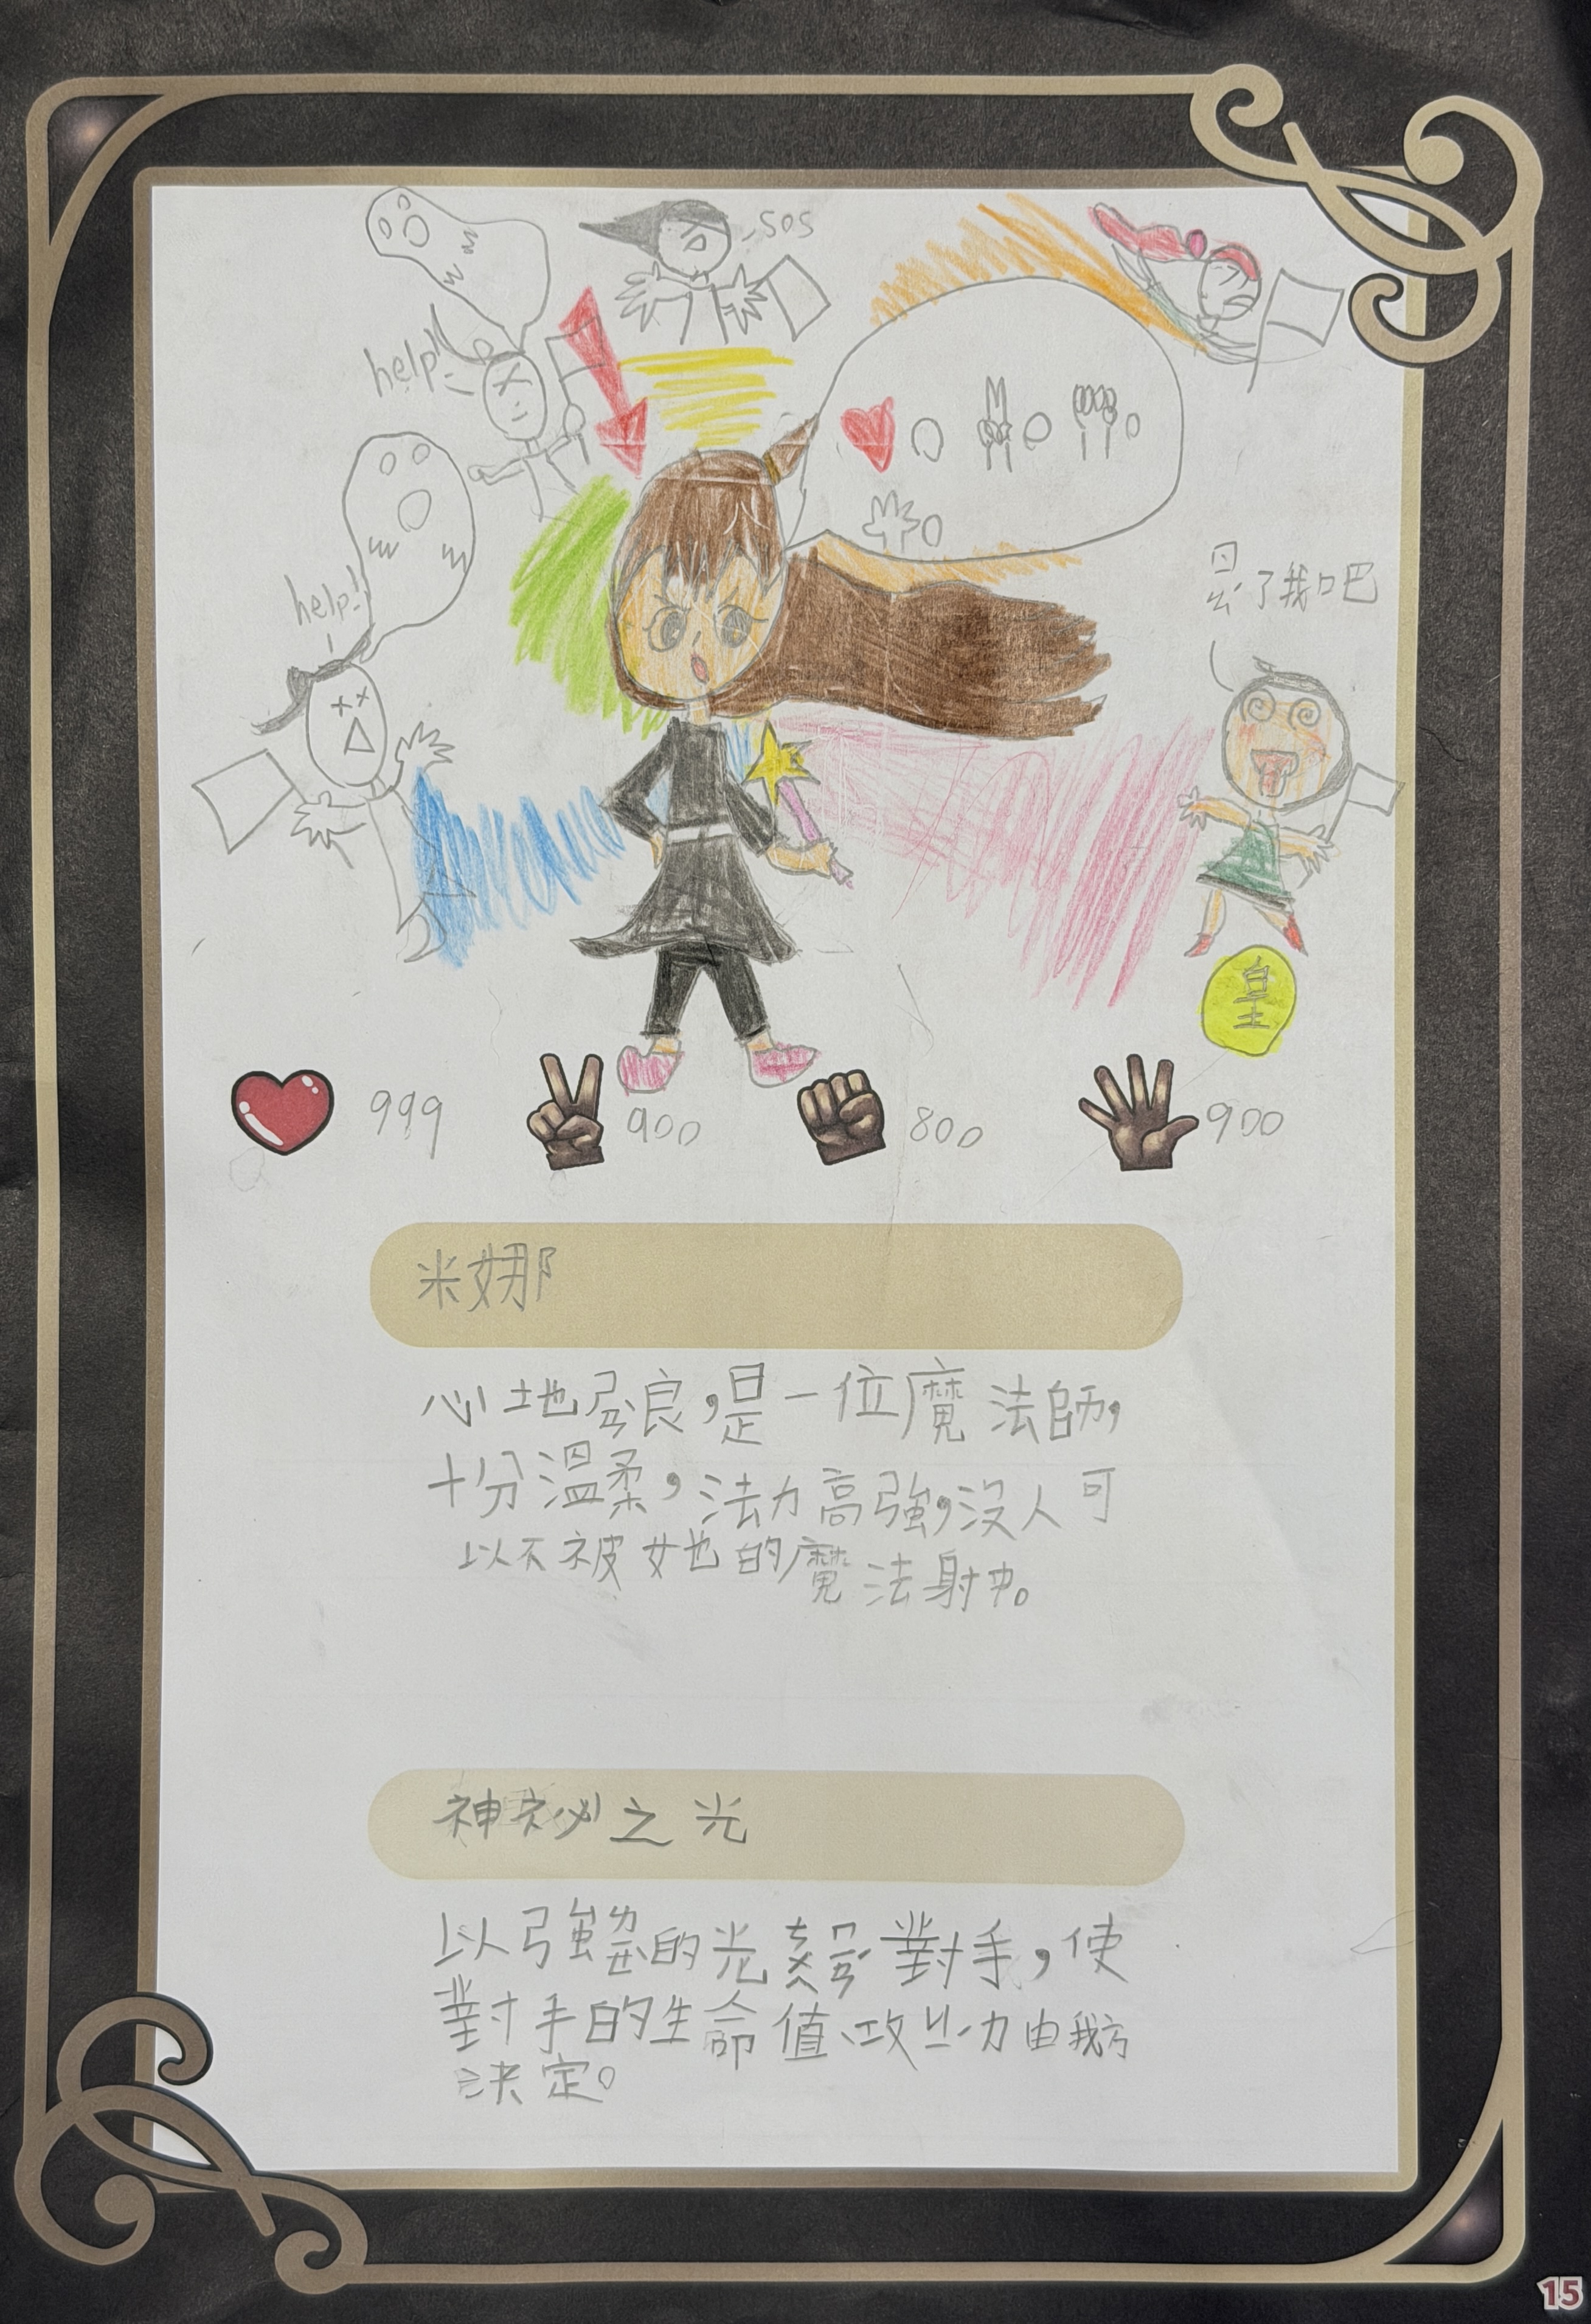 SOS
help!!
0 0 0
0
help!
了我吧
皇
999 900 800 900
米娜
心地良,是一位魔法師,
十分溫柔,法力高強,沒人可
以不被她的魔法射中。
神祕之光
以強的光對手,使
對手的生命值、攻ㄐㄧ力由我方
決定。
15